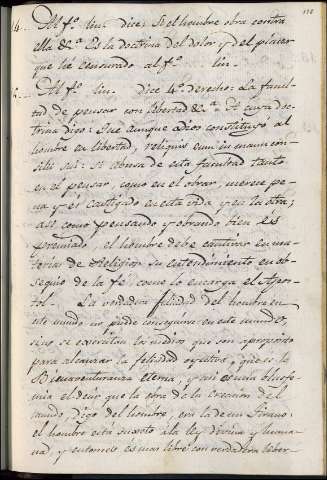 Al fº. lin. dice: Si el hombre obra contra
ella &ª Es la doctrina del dolor y del placer
que he censurado al fº. lin.
Al fº. lin. dice 4º derecho: La facul-
tad de pensar con libertad &ª. A cuya doc-
trina digo: Que aunque Dios constituyó al
hombre en libertad, reliquit eum in manu con-
silii sui: si abusa de esta facultad tanto
en el pensar, como en el obrar, merece pe-
na y es castigado en esta vida y en la otra;
asi como pensando y obrando bien és
premiado. el hombre debe cautivar en ma-
teria de Religion su entendimiento en ob-
sequio de la fé: como lo encarga el Apos-
tol. La verdadera felicidad del hombre en
este mundo no puede conseguirse en este mundo,
sino se executan los medios que son aproposito
para alcanzar la felicidad que es la
Bienaventuranza eterna, y asi es una blasfe-
mia el decir que la obra de la creacion del
mundo, digo del hombre, era la de un Tirano:
el hombre está sugeto á la ley divina y huma-
na, y entonces es mas libre con verdadera liber-